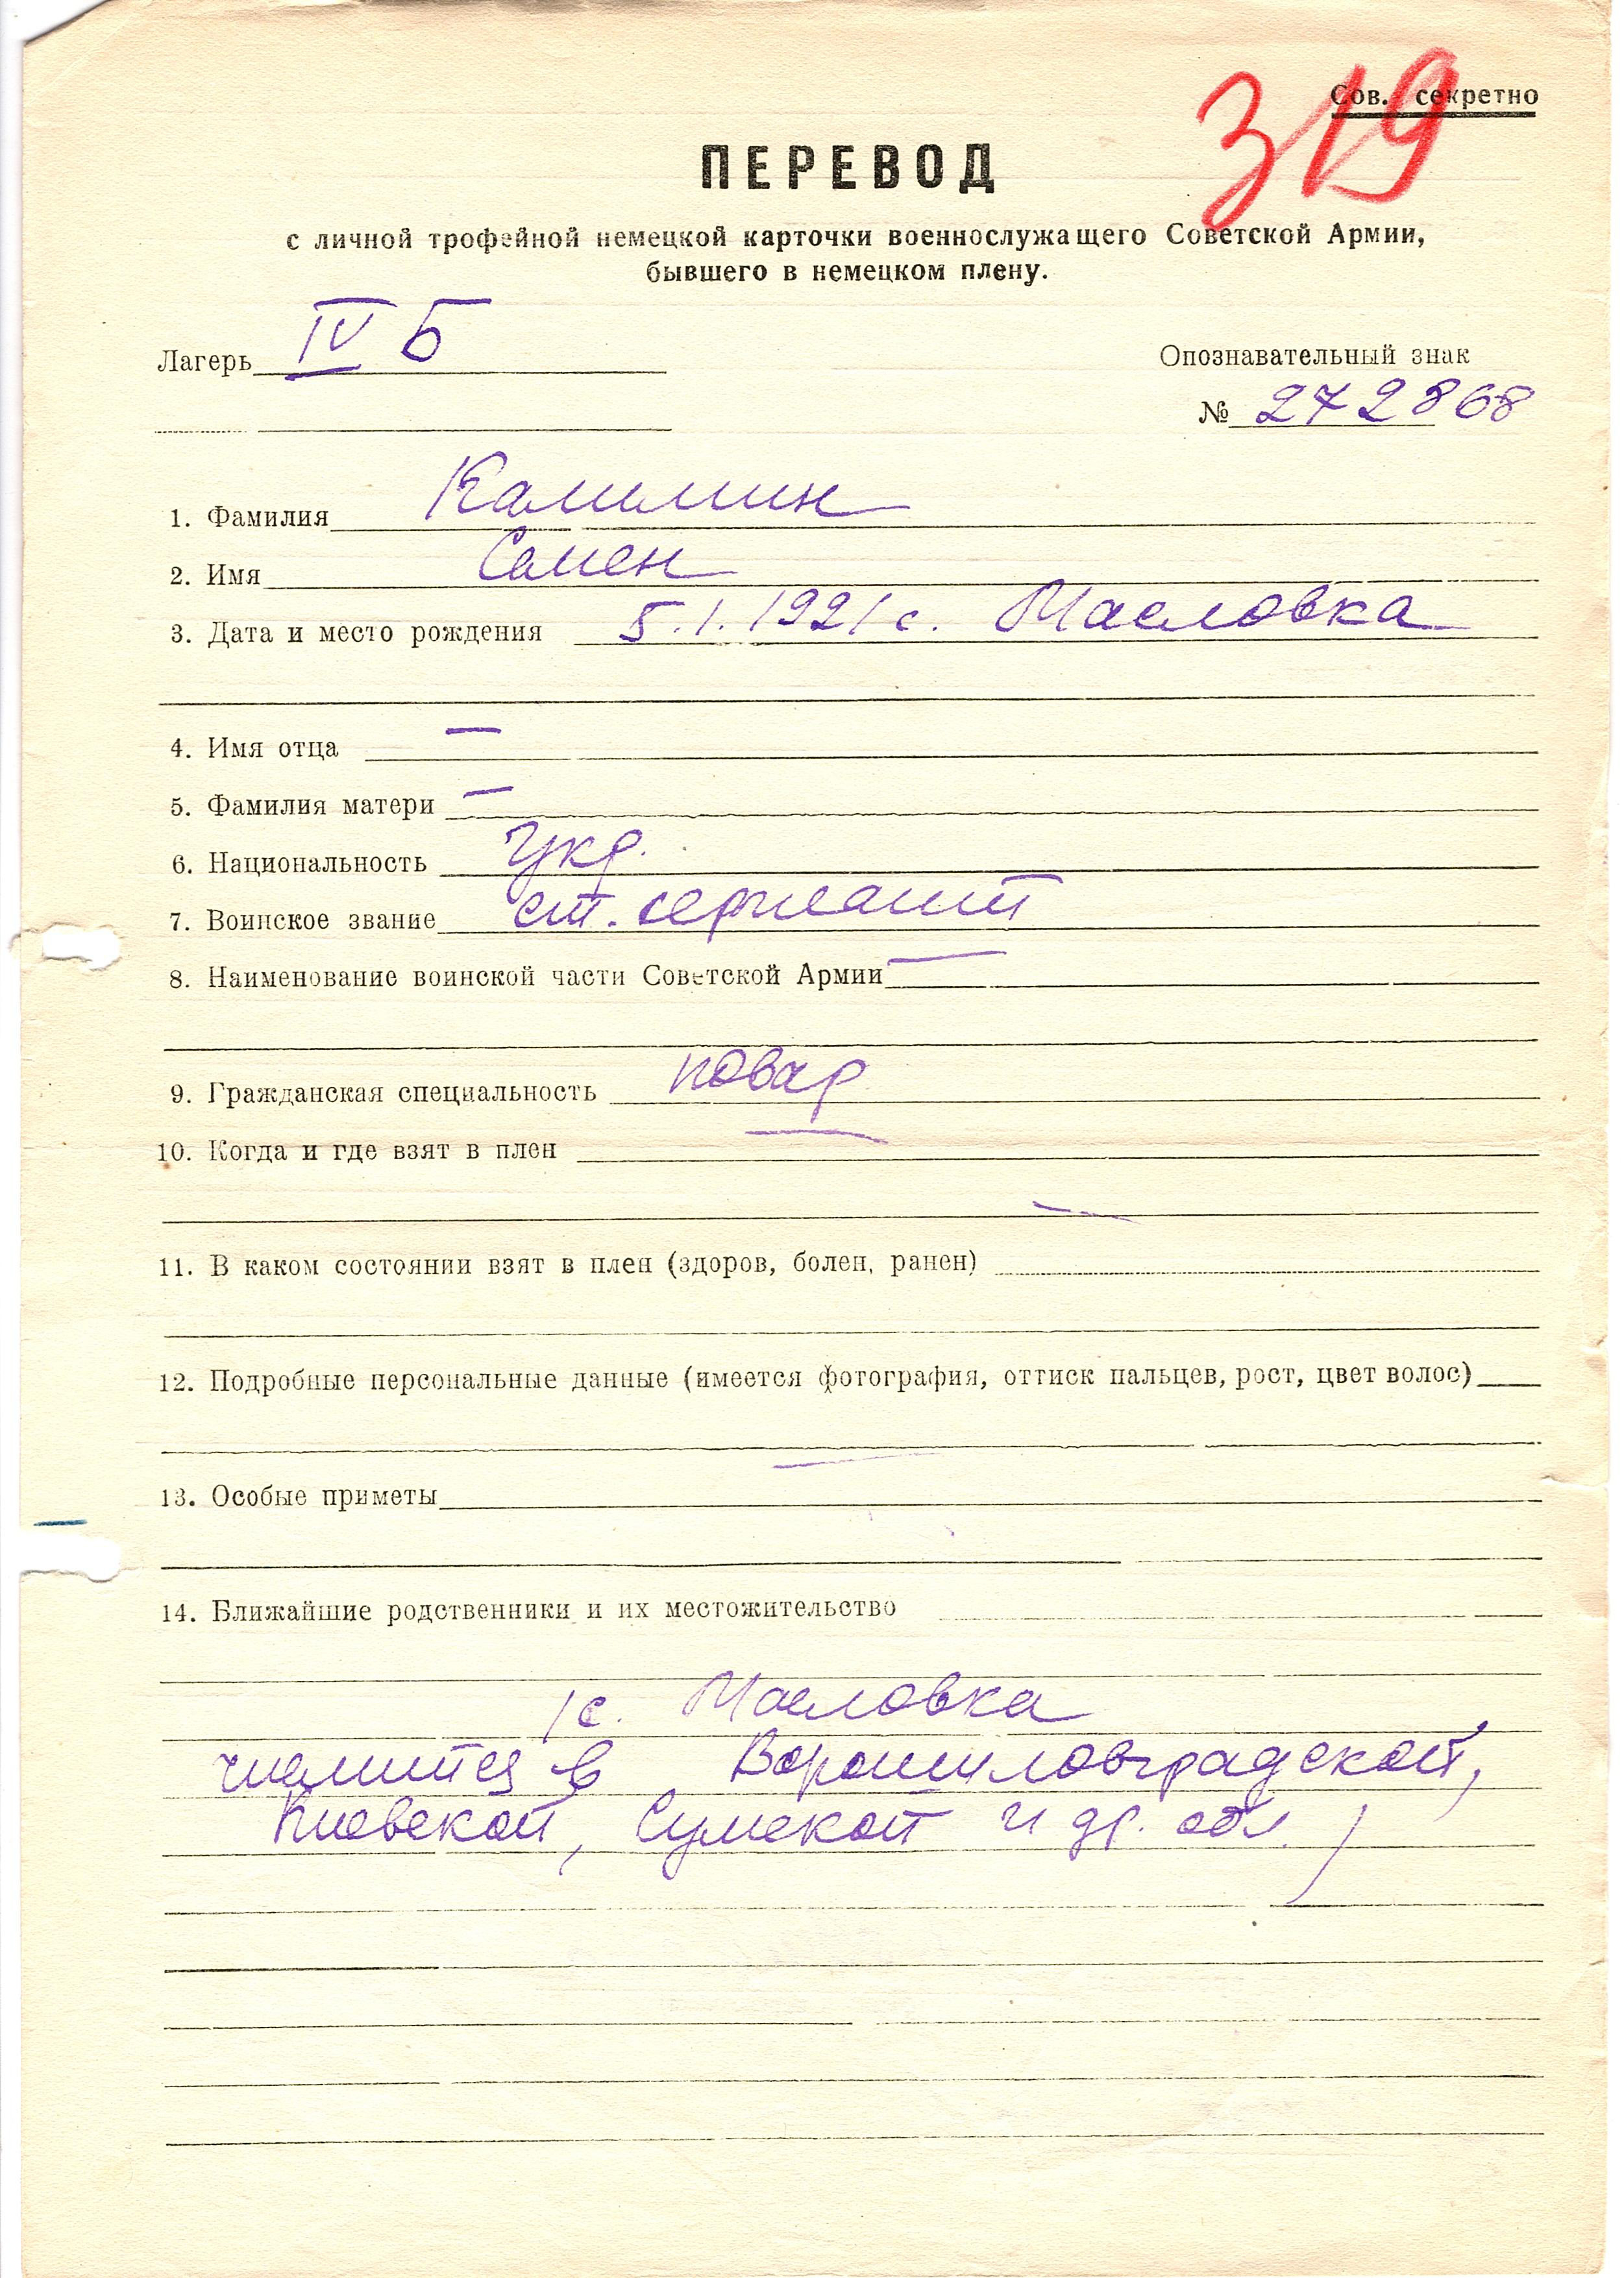 319
Сов. секретно
ПЕРЕВОД
с личной трофейной немецкой карточки военнослужащего Советской Армии,
бывшего в немецком плену.
Лагерь IV Б
Опознавательный знак
№ 272868
1. Фамилия
2. Имя Семен
3. Дата и место рождения 5.1.1921 с. Масловка
4. Имя отца —
5. Фамилия матери —
6. Национальность Укр.
7. Воинское звание ст. сержант
8. Наименование воинской части Советской Армии —
9. Гражданская специальность повар
10. Когда и где взят в плен —
—
11. В каком состоянии взят в плен (здоров, болен, ранен)
12. Подробные персональные данные (имеется фотография, оттиск пальцев, рост, цвет волос)
—
13. Особые приметы
14. Ближайшие родственники и их местожительство
/с. Масловка
числится в Ворошиловградской,
Киевской, Сумской и др. обл./